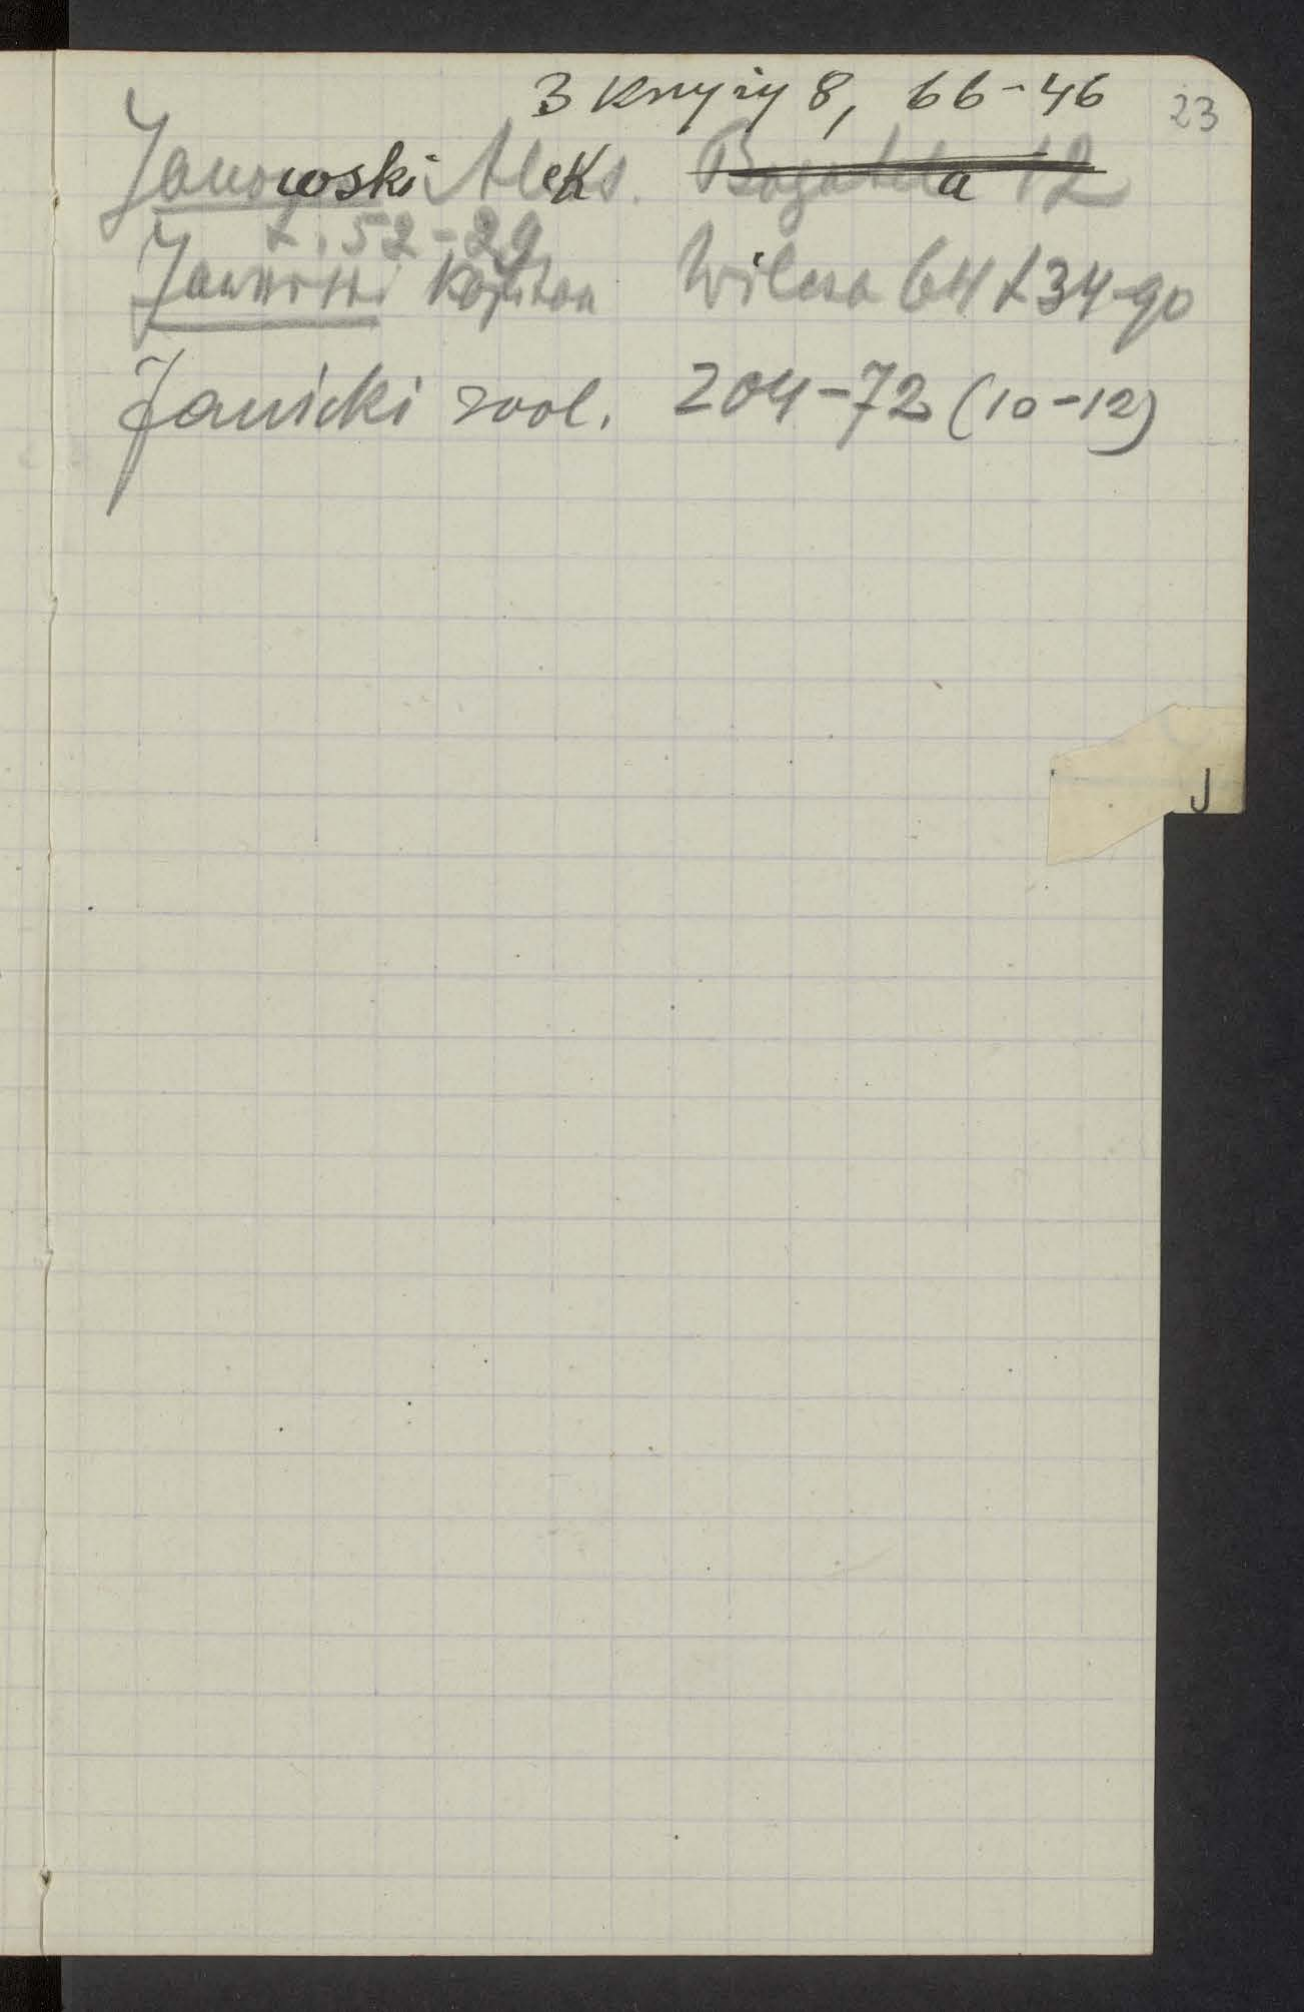 3 Krzyży 8, 66-46
23
Janowski Aleks. Bagatela 12
t. 52-29
Kapitan Wilcza 64 t 34-90
Janicki zool. 204-72 (10-12)
J